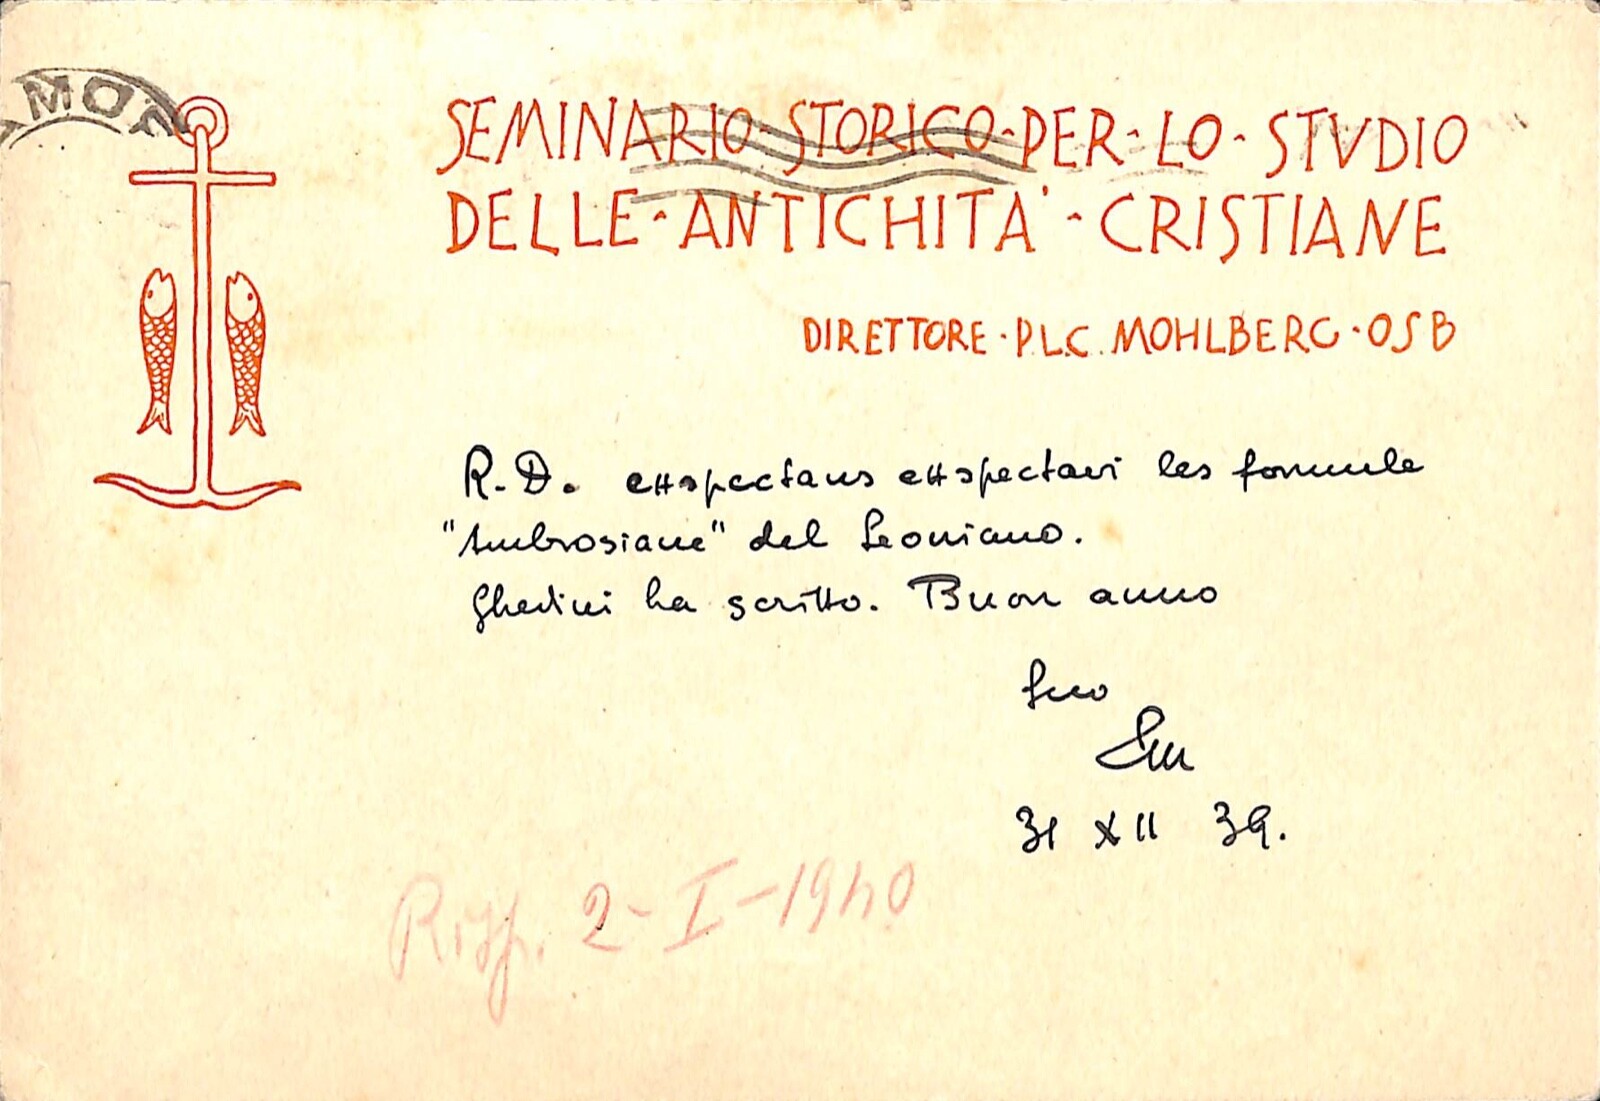 SEMINARIO·STORICO·PER·LO·STVDIO
DELLE·ANTICHITA'·CRISTIANE
DIRETTORE·P.L.C. MOHLBERG·OSB
R.D. exspectans exspectavi les formule
"Ambrosiane" del Leoniano.
Ghedini ha scritto. Buon anno
Suo
31 XII 39.
Risp. 2-I-1940